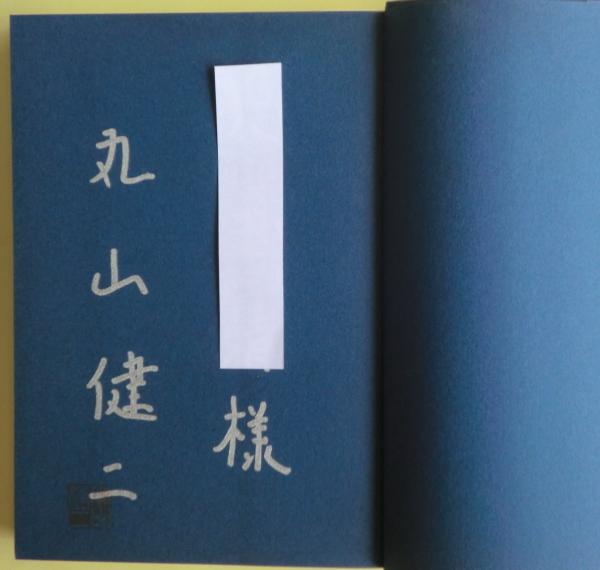 様
丸山健二